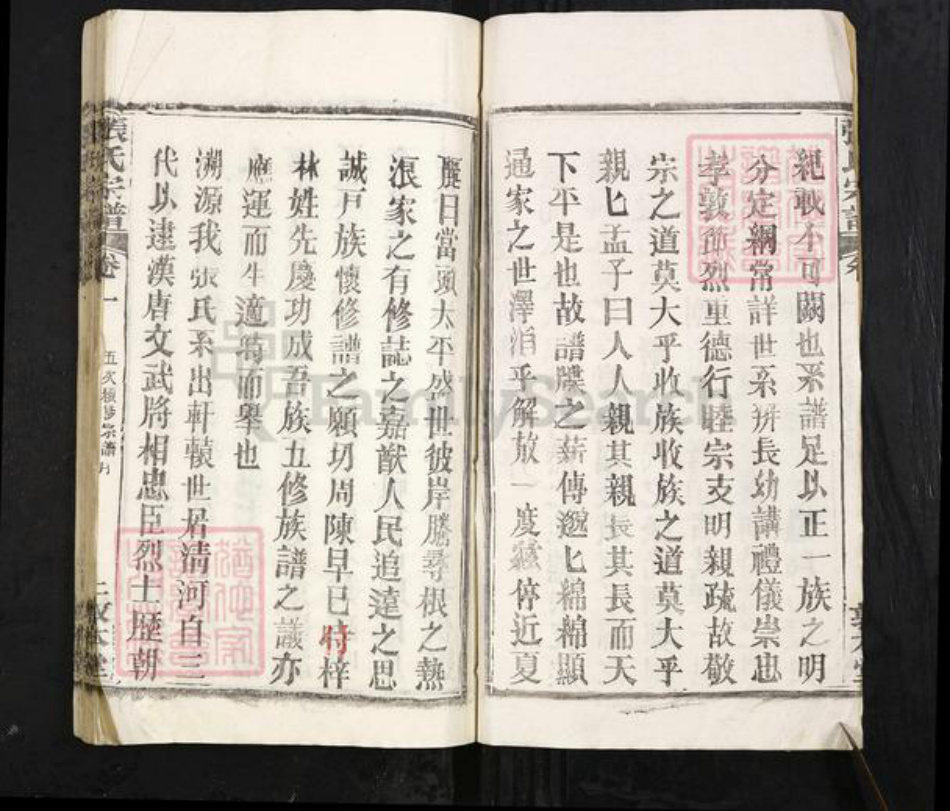 紀載不可闕也系譜足以正一族之明
分定綱常詳世系辨長幼講禮儀崇忠
孝敦節烈重德行睦宗支明親疏故敬
宗之道莫大乎收族收族之道莫大乎
親匕孟子曰人人親其親長其長而天
下平是也故譜牒之薪傳邈匕綿綿顯
通家之世澤滔乎解放一度 停近夏
麗日當頭太平盛世彼岸騰尋根之熱
浪家之有修誌之嘉猷人民追遠之思
誠戸族懷修譜之願切周陳早已付梓
林姓先慶功成吾族五修族譜之議亦
應運而生適時而舉也
溯源我張氏系出軒轅世居清河自三
代以逮漢唐文武將相忠臣烈士歷朝
張氏宗譜
卷一
五次續修宗譜
二敦本堂
FamilySearch